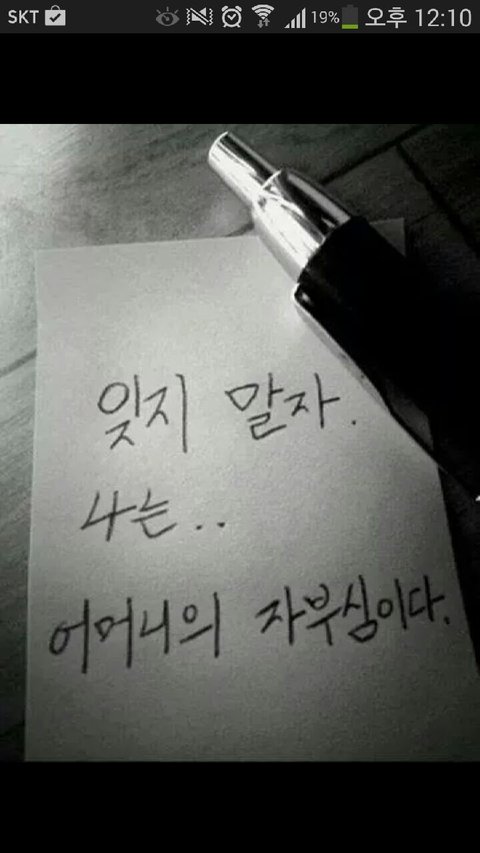 SKT 19% 오후 12:10
잊지 말자.
나는..
어머니의 자부심이다.